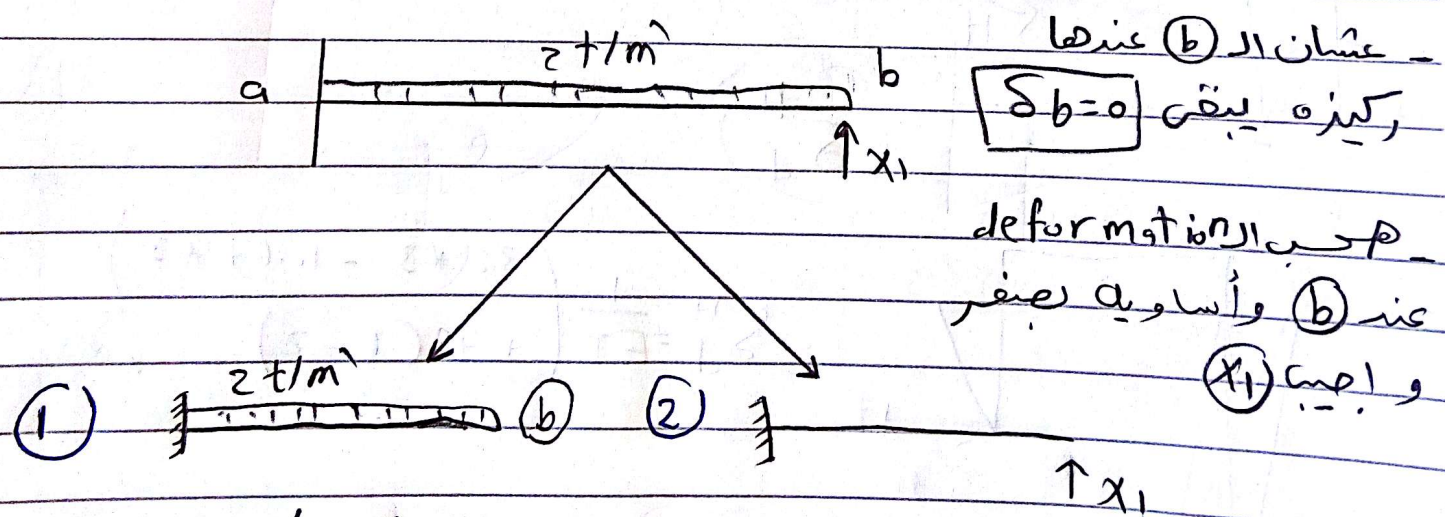 2 t/m`
a
b
X1
- عشان الـ (b) عندها
ركيزه يبقى δb=0
- هحسب الـ deformation
عند (b) وأساويه بصفر
و اجيب (X1)
① 2 t/m` (b)
② X1